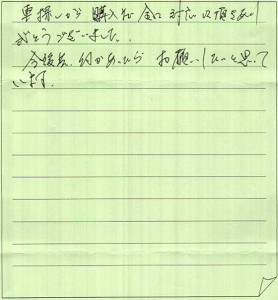 車探しから購入まで 対応して頂きあり
がとうございました。
今後も、何かあったら お願いしたいと思って
います。